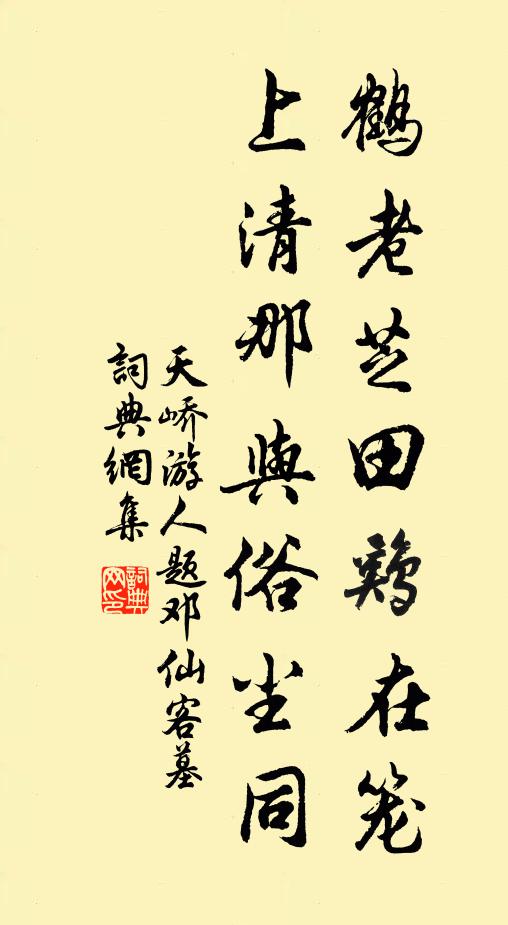 鹤老芝田鸡在笼
上清那与俗尘同
天峤游人题邓仙客墓
詞典網集
詞典網印